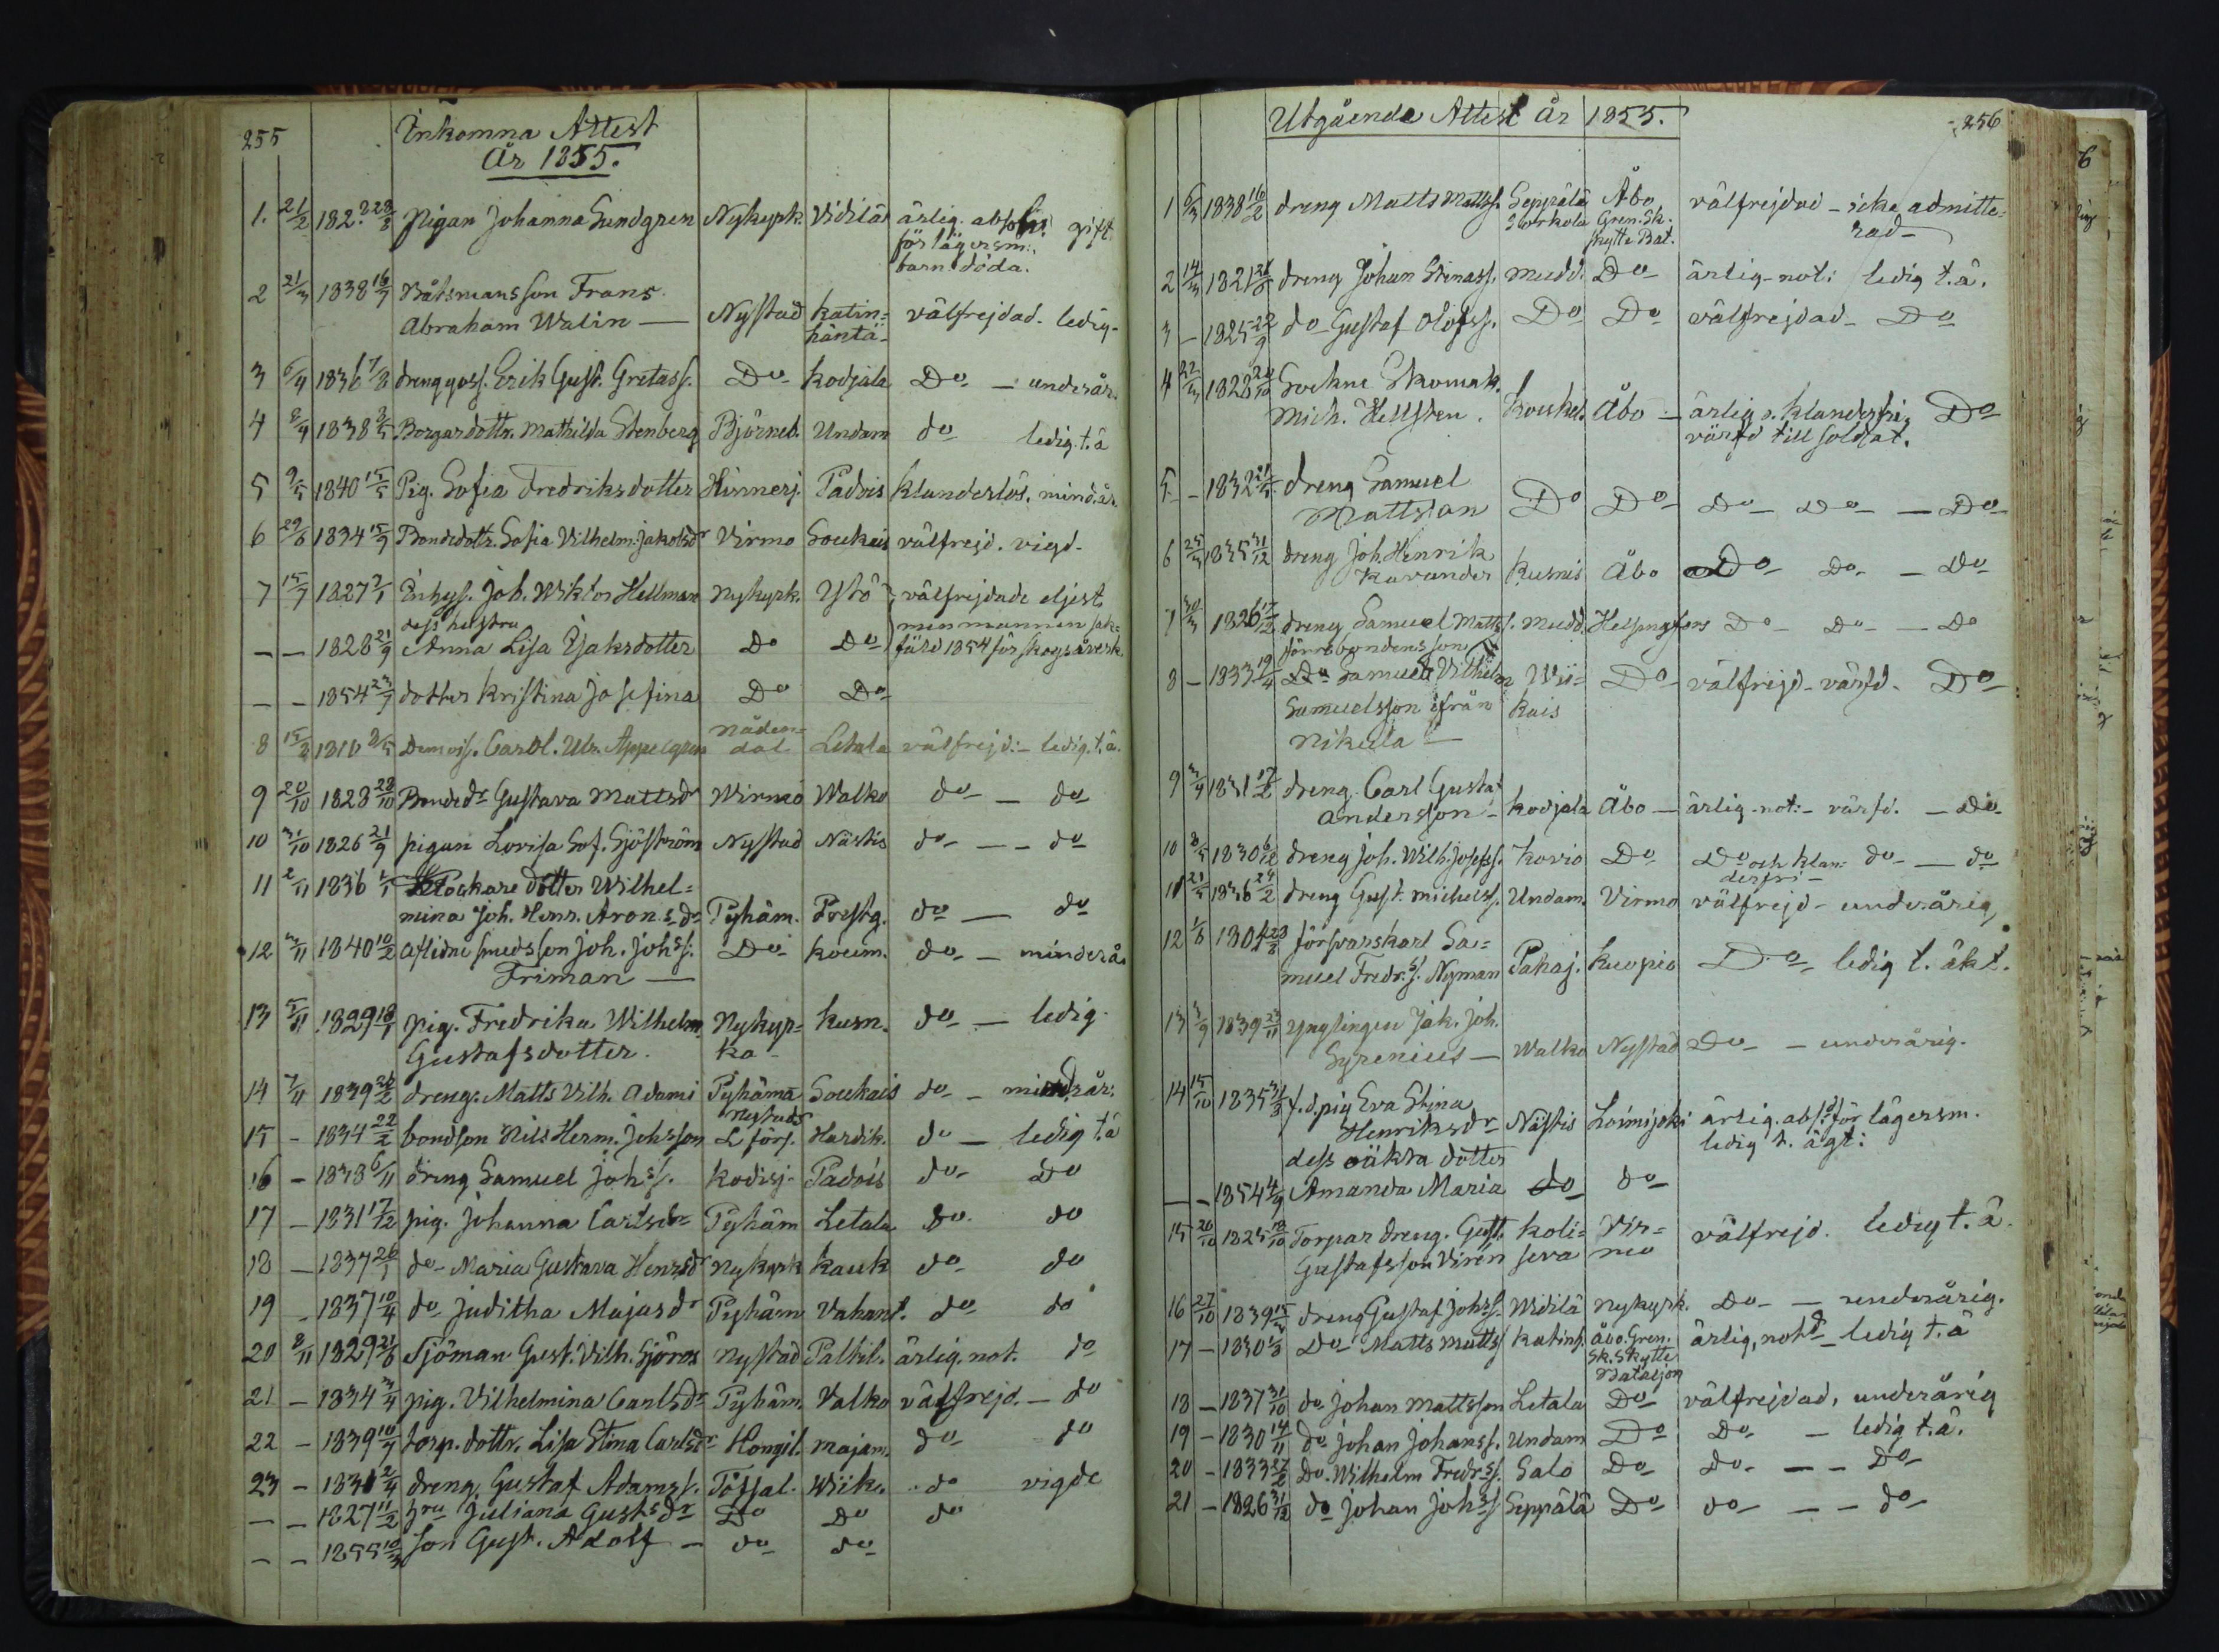 255
Inkomna Attest
År 1855.
1. 21/2 182. 28/8 Pigan Johanna Sundgren Nykyrk. Vidilä ärlig. absolv. gift
för lägersm:
barn. döda.
2 21/3 1838 16/7 Båtsmansson Frans
Abraham Walin — Nystad Katin= välfrejdad. ledig-
häntä-
3 6/4 1836 7/8 drenggoss. Erik Gust. Gretass. Do Kodjala Do — underår.
4 8/4 1838 3/5 Borgardottr. Mathilda Stenberg Björneb. Undam do ledig. t. ä
5 9/5 1840 15/5 Pig. Sofia Fredriksdotter Hinnerj. Padois klanderlös. mind.år.
6 29/6 1834 15/9 Bondedottr. Sofia Vilhelm. Jakobsdr Virmo Soukais välfrejd. vigd.
7 15/7 1827 9/1 Inhys. Joh. Wiktor Hellman Nykyrk. Ytö välfrejdade eljest
dess hustru men mannen sak=
— — 1828 21/9 Anna Lisa Isaksdotter Do Do fäld 1854 för skogsåverk.
— — 1854 23/7 dotter Kristina Josefina Do Do
8 15/8 1816 8/5 Demois. Carol. Ulr. Appelgren Nåden= Letala välfrejd:- ledig. t. ä.
dal
9 20/10 1828 28/10 Bondedr Gustava Mattsdr Wirmo Walko do — do
10 31/10 1826 21/9 pigan Lovisa Sof. Sjöström Nystad Nästis do — — do
11 2/11 1836 1/1 Klockare dotter Wilhel=
mina Joh. Henr. Aronsdr Pyhäm. Prestg. do — do
12 3/11 1840 10/2 aflidne smedsson Joh. Johss. Do Koum. do — minderår
Friman —
13 5/11 1829 18/1 pig. Fredrika Wilhelm. Nykyr= Kusn. do — ledig.
Gustafsdotter. ka-
14 7/11 1839 26/2 dreng. Matts Vilh. Adami Pyhämä Soukais do — mindrår:
15 - 1834 22/2 bondson Nils Herm. Johsson Nystads L förs. Hardik. do — ledig t. ä
16 - 1838 6/11 dreng Samuel Johss. Kodisj. Padois do Do
17 — 1831 17/12 pig. Johanna Carlsdr Pyhäm Letala Do do
18 — 1837 26/1 do Maria Gustava Henrsdr Nykyrk Kauk do do
19 - 1837 10/4 do Juditha Majasdr Pyhäm Vahant. do do
20 8/11 1829 21/6 Sjöman Gust. Vilh. Sjöros Nystad Paltil. ärlig. not. do
21 - 1834 3/4 pig. Vilhelmina Carlsdr Pyhäm. Valko välfrejd. — do
22 - 1839 10/7 torp. dottr. Lisa Stina Carlsdr Hongil. Majam. do do
23 - 1831 2/4 dreng Gustaf Adamss. Töfsal. Wiik. do vigde
— — 1827 11/2 hru Juliana Gustsdr Do Do do
— — 1855 10/3 son Gust. Adolf — do do
Utgående Attest År 1855.
256
1 6/3 1838 16/2 dreng Matts Mattss. Seppälä Åbo, välfrejdad — icke admitte=
Storkola Gren. Sk. rad—
skytte Bat.
2 14/3 1821 21/8 dreng Johan Stinass. Mudd. Do ärlig — not: ledig t. ä.
3 — 1825 22/9 do Gustaf Olofss. Do Do välfrejdad — Do
4 22/3 1828 20/10 Sockne Skomak.
Mich. Hellsten. Kouked. Åbo — ärlig o. klanderfri, Do
värfd till soldat.
5 - 1832 21/5 dreng Samuel
Mattsson Do Do Do Do — Do
6 25/3 1835 31/12 dreng Joh. Henrik
Kavander Kusnis Åbo Do Do — Do
7 30/3 1826 17/12 dreng Samuel Mattss. Mudd. Helsingfors Do Do — Do
förre bondensson
8 — 1833 19/4 Do Samuel Vilhelm Wii= Do välfrejd. värfd. Do
Samuelsson ifrån kais
Nikula —
9 3/4 1831 17/2 dreng. Carl Gustaf
Andersson — Kodjala Åbo — ärlig - not: - värfd. — Do
10 8/5 1830 6/12 dreng Joh. Wilh. Josefss. Kovio Do Do och klan= do — do
derfri —
11 21/5 1836 24/2 dreng Gust. Michelss. Undam. Virmo välfrejd — underårig
12 1/6 1804 23/8 försvarskarl Sa=
muel Fredr. s. Nyman Pahaj. Kuopio Do ledig t. äkt.
13 3/9 1839 23/11 Ynglingen Jak. Joh.
Syrenius — Walko Nystad Do — underårig.
14 15/10 1835 31/3 f. d. pig Eva Stina
Henriksdr Nästis Loimijoki ärlig. abs: för lägersm.
ledig t. ägt:
dess oäkta dotter
— — 1854 4/9 Amanda Maria do do
15 26/10 1825 18/10 Torpar dreng. Gust. Koli= Vir= välfrejd. ledig t. ä.
Gustafsson Virén seva mo
16 27/10 1839 15/3 dreng Gustaf Johss. Widilä Nykyrk. Do — underårig.
17 — 1830 1/8 Do Matts Mattss Katinh. Åbo. Gren. ärlig, not: ledig t. ä
Sk. Skytte
Bataljon
18 — 1837 31/10 do Johan Mattsson Letala Do välfrejdad, underårig
19 — 1830 14/11 do Johan Johanss. Undam Do Do — ledig t. ä.
20 - 1833 27/2 Do. Wilhelm Fredrss. Salo Do do — — Do
21 — 1826 31/12 do Johan Johss Seppälä Do do — — do